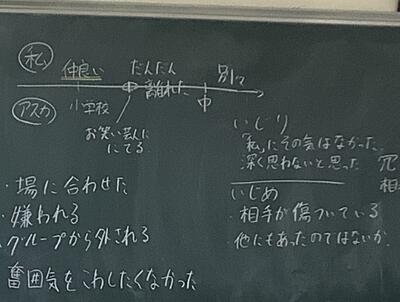 私
仲良い だんだん 離れた 別々
アスカ
小学校 中 中
お笑い芸人に
にてる
いじり
「私」にその気はなかった
深く思わないと思った
いじめ
・相手が傷ついている
・他にもあったのではないか
・場に合わせた
・嫌われる
・グループから外される
雰囲気をこわしたくなかった
相